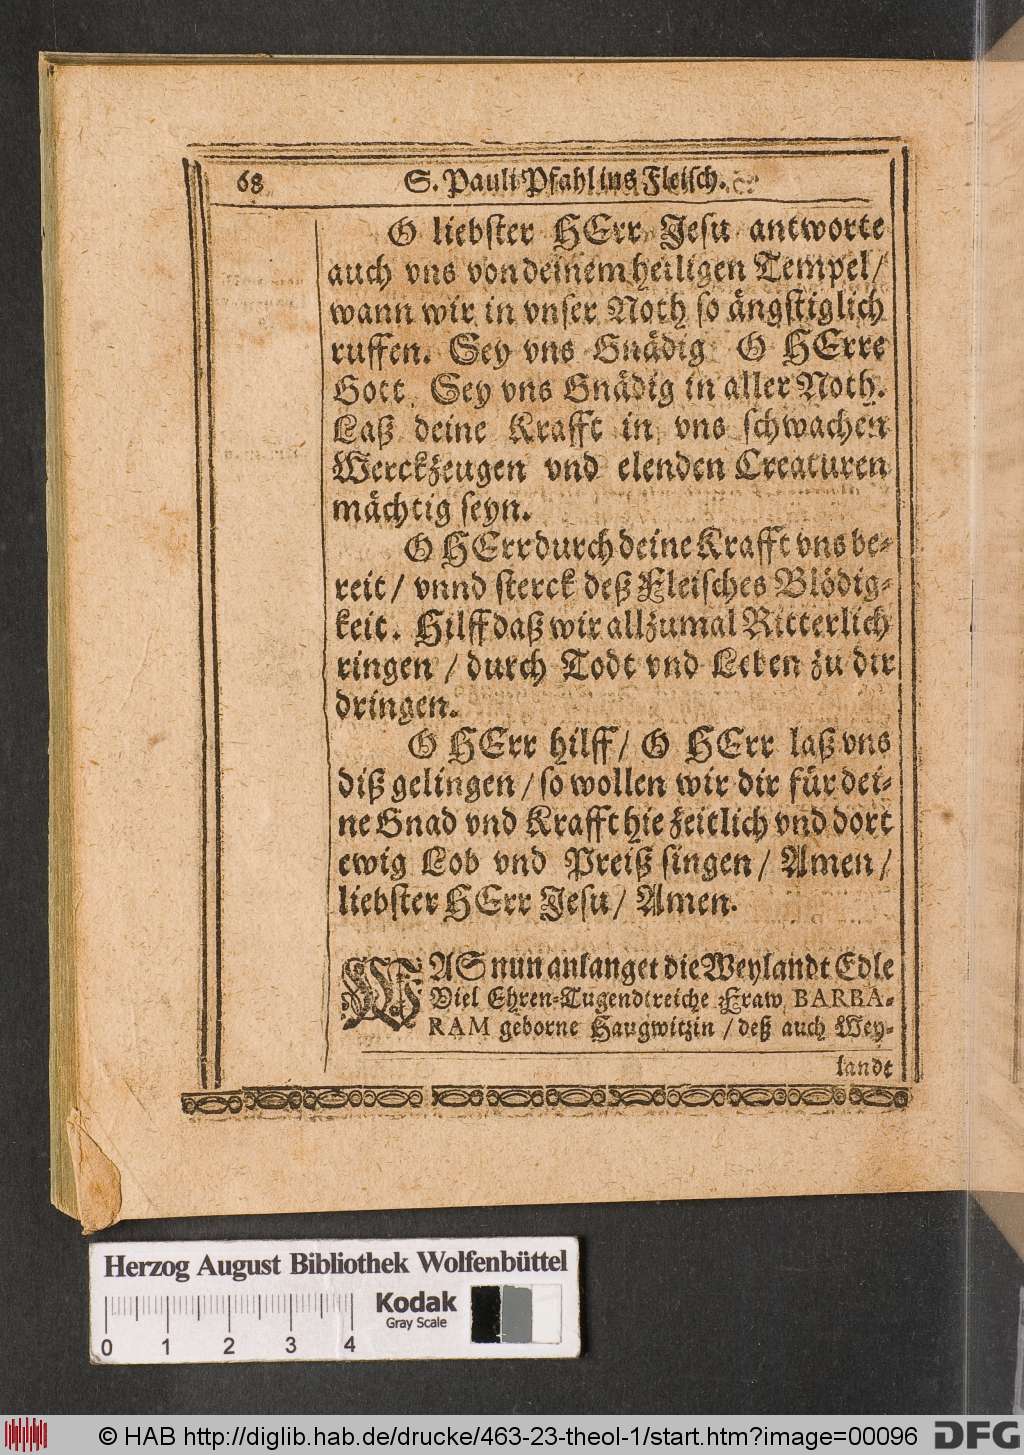 68 S. Pauli Pfahl ins Fleisch.
O liebster HErr Jesu antworte
auch vns von deinem heiligen Tempel/
wann wir in vnser Noth so ängstiglich
ruffen. Sey vns Gnädig O HErre
Gott, Sey vns Gnädig in aller Noth.
Laß deine Krafft in vns schwachen
Werckzeugen vnd elenden Creaturen
mächtig seyn.
O HErr durch deine Krafft vns be-
reit/ vnnd sterck deß Fleisches Blödig-
keit. Hilff daß wir allzumal Ritterlich
ringen / durch Todt vnd Leben zu dir
dringen.
O HErr hilff/ O HErr laß vns
diß gelingen / so wollen wir dir für dei-
ne Gnad vnd Krafft hie zeitlich vnd dort
ewig Lob vnd Preiß singen/ Amen/
liebster HErr Jesu/ Amen.
WAS nun anlanget die Weylandt Edle
Viel Ehren-Tugendtreiche Fraw BARBA-
RAM geborne Haugwitzin / deß auch Wey-
landt
Herzog August Bibliothek Wolfenbüttel
Kodak
Gray Scale
0 1 2 3 4
© HAB http://diglib.hab.de/drucke/463-23-theol-1/start.htm?image=00096
DFG